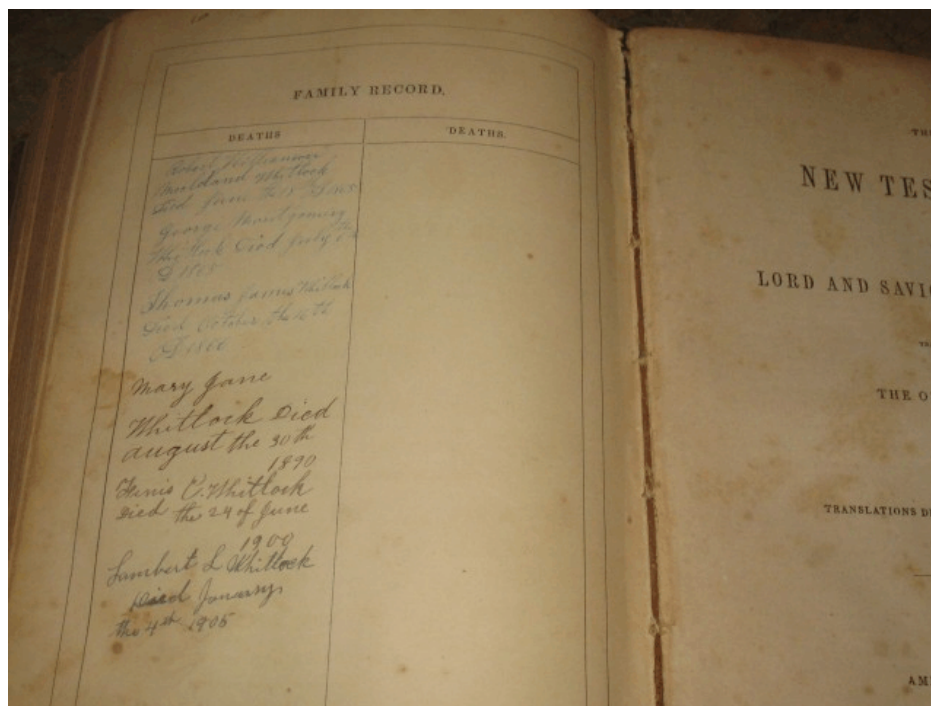 FAMILY RECORD.
DEATHS
DEATHS.
Whitlock
Died June the 15
George Montgomery
Whitlock Died July
D 1865
Thomas James Whitlock
Died October the 16 th
Mary Jane
Whitlock Died
august the 30 th
1890
C. Whitlock
Died the 24 of June
1900
Lambert L Whitlock
Died January
the 4th 1905
NEW TES
LORD AND SAVIO
THE O
TRANSLATIONS D
AM